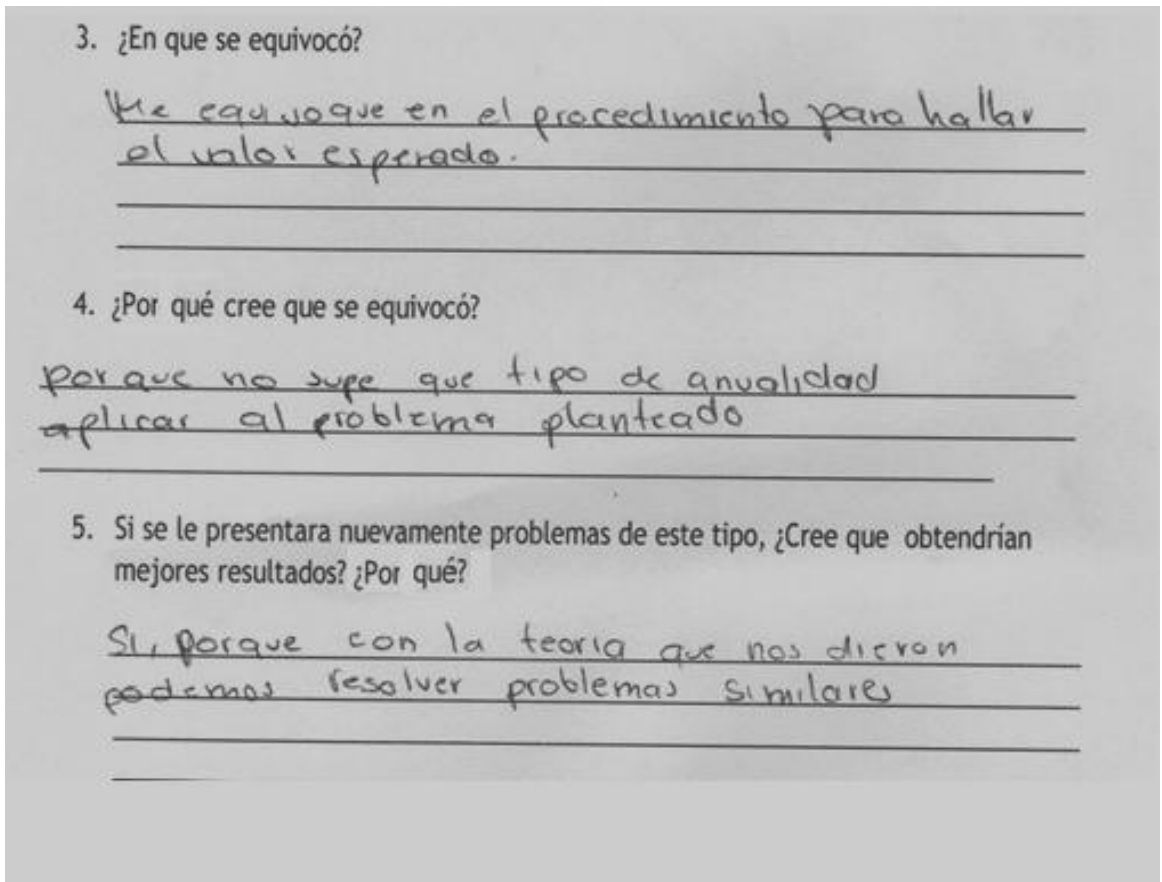 3. ¿En que se equivocó?
Me equivoque en el procedimiento para hallar
el valor esperado.
4. ¿Por qué cree que se equivocó?
porque no supe que tipo de anualidad
aplicar al problema planteado
5. Si se le presentara nuevamente problemas de este tipo, ¿Cree que obtendrían
mejores resultados? ¿Por qué?
Si, porque con la teoria que nos dieron
podemos resolver problemas similares